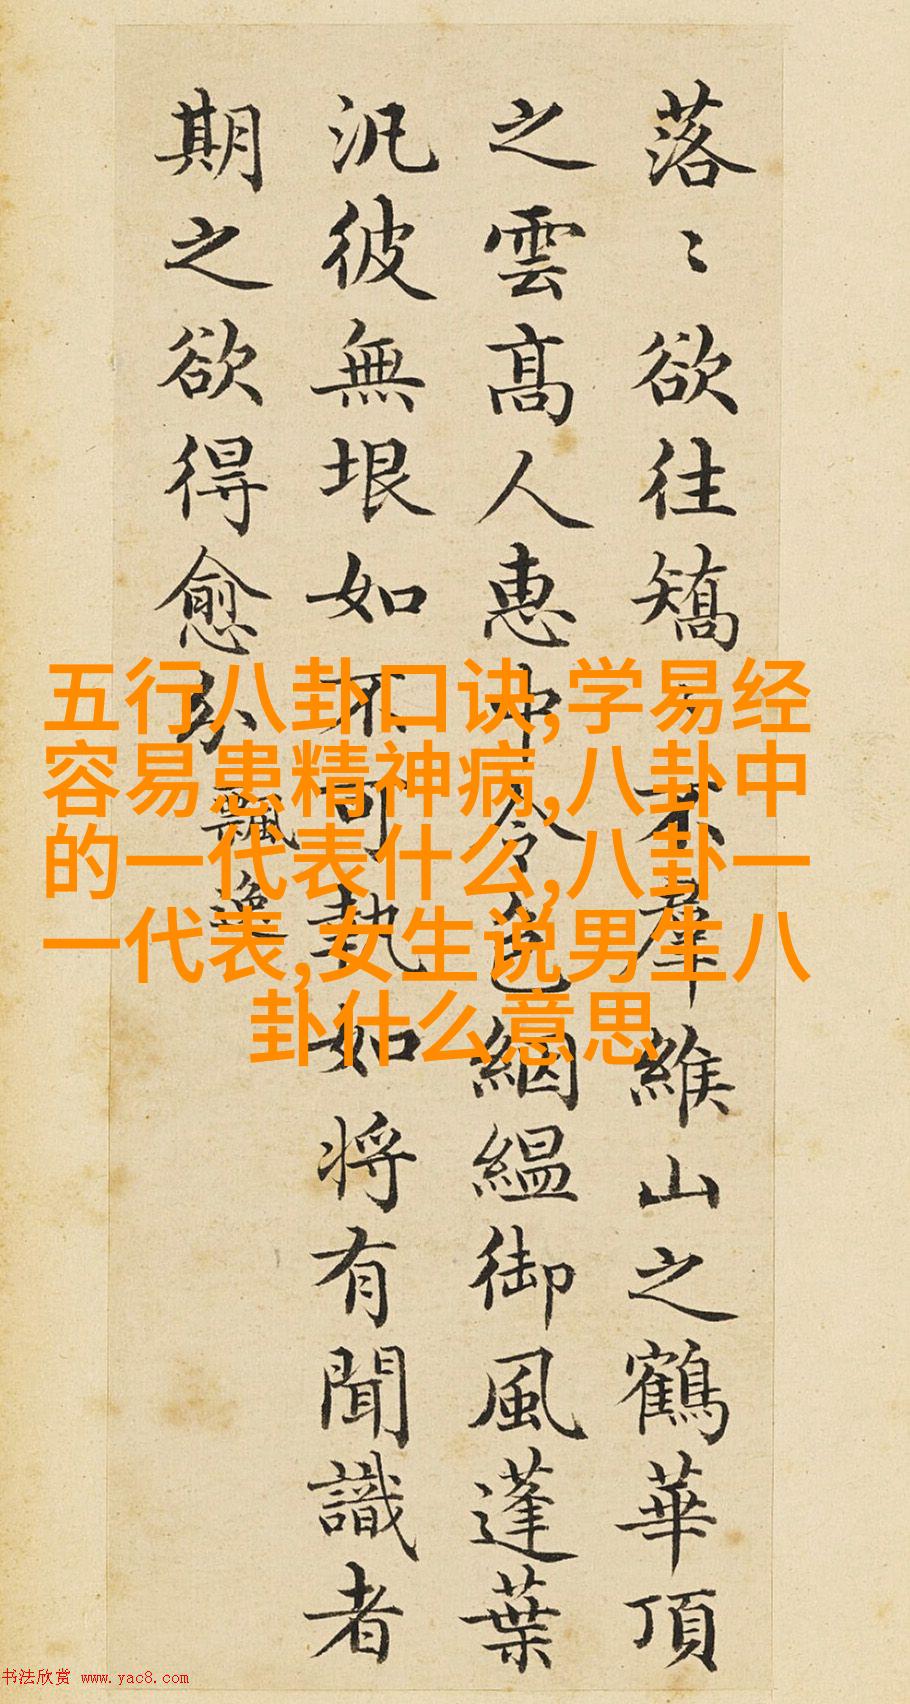 落〻欲往矯〻不羣緱山之鶴華頂
之雲髙人惠中令色絪縕御風蓬葉
汎彼無垠如不可執如將有聞識者
期之欲得愈分
飄逸
五行八卦口诀,学易经
容易患精神病,八卦中
的一代表什么,八卦一
一代表,女生说男生八
卦什么意思
书法欣赏 www.yac8.com